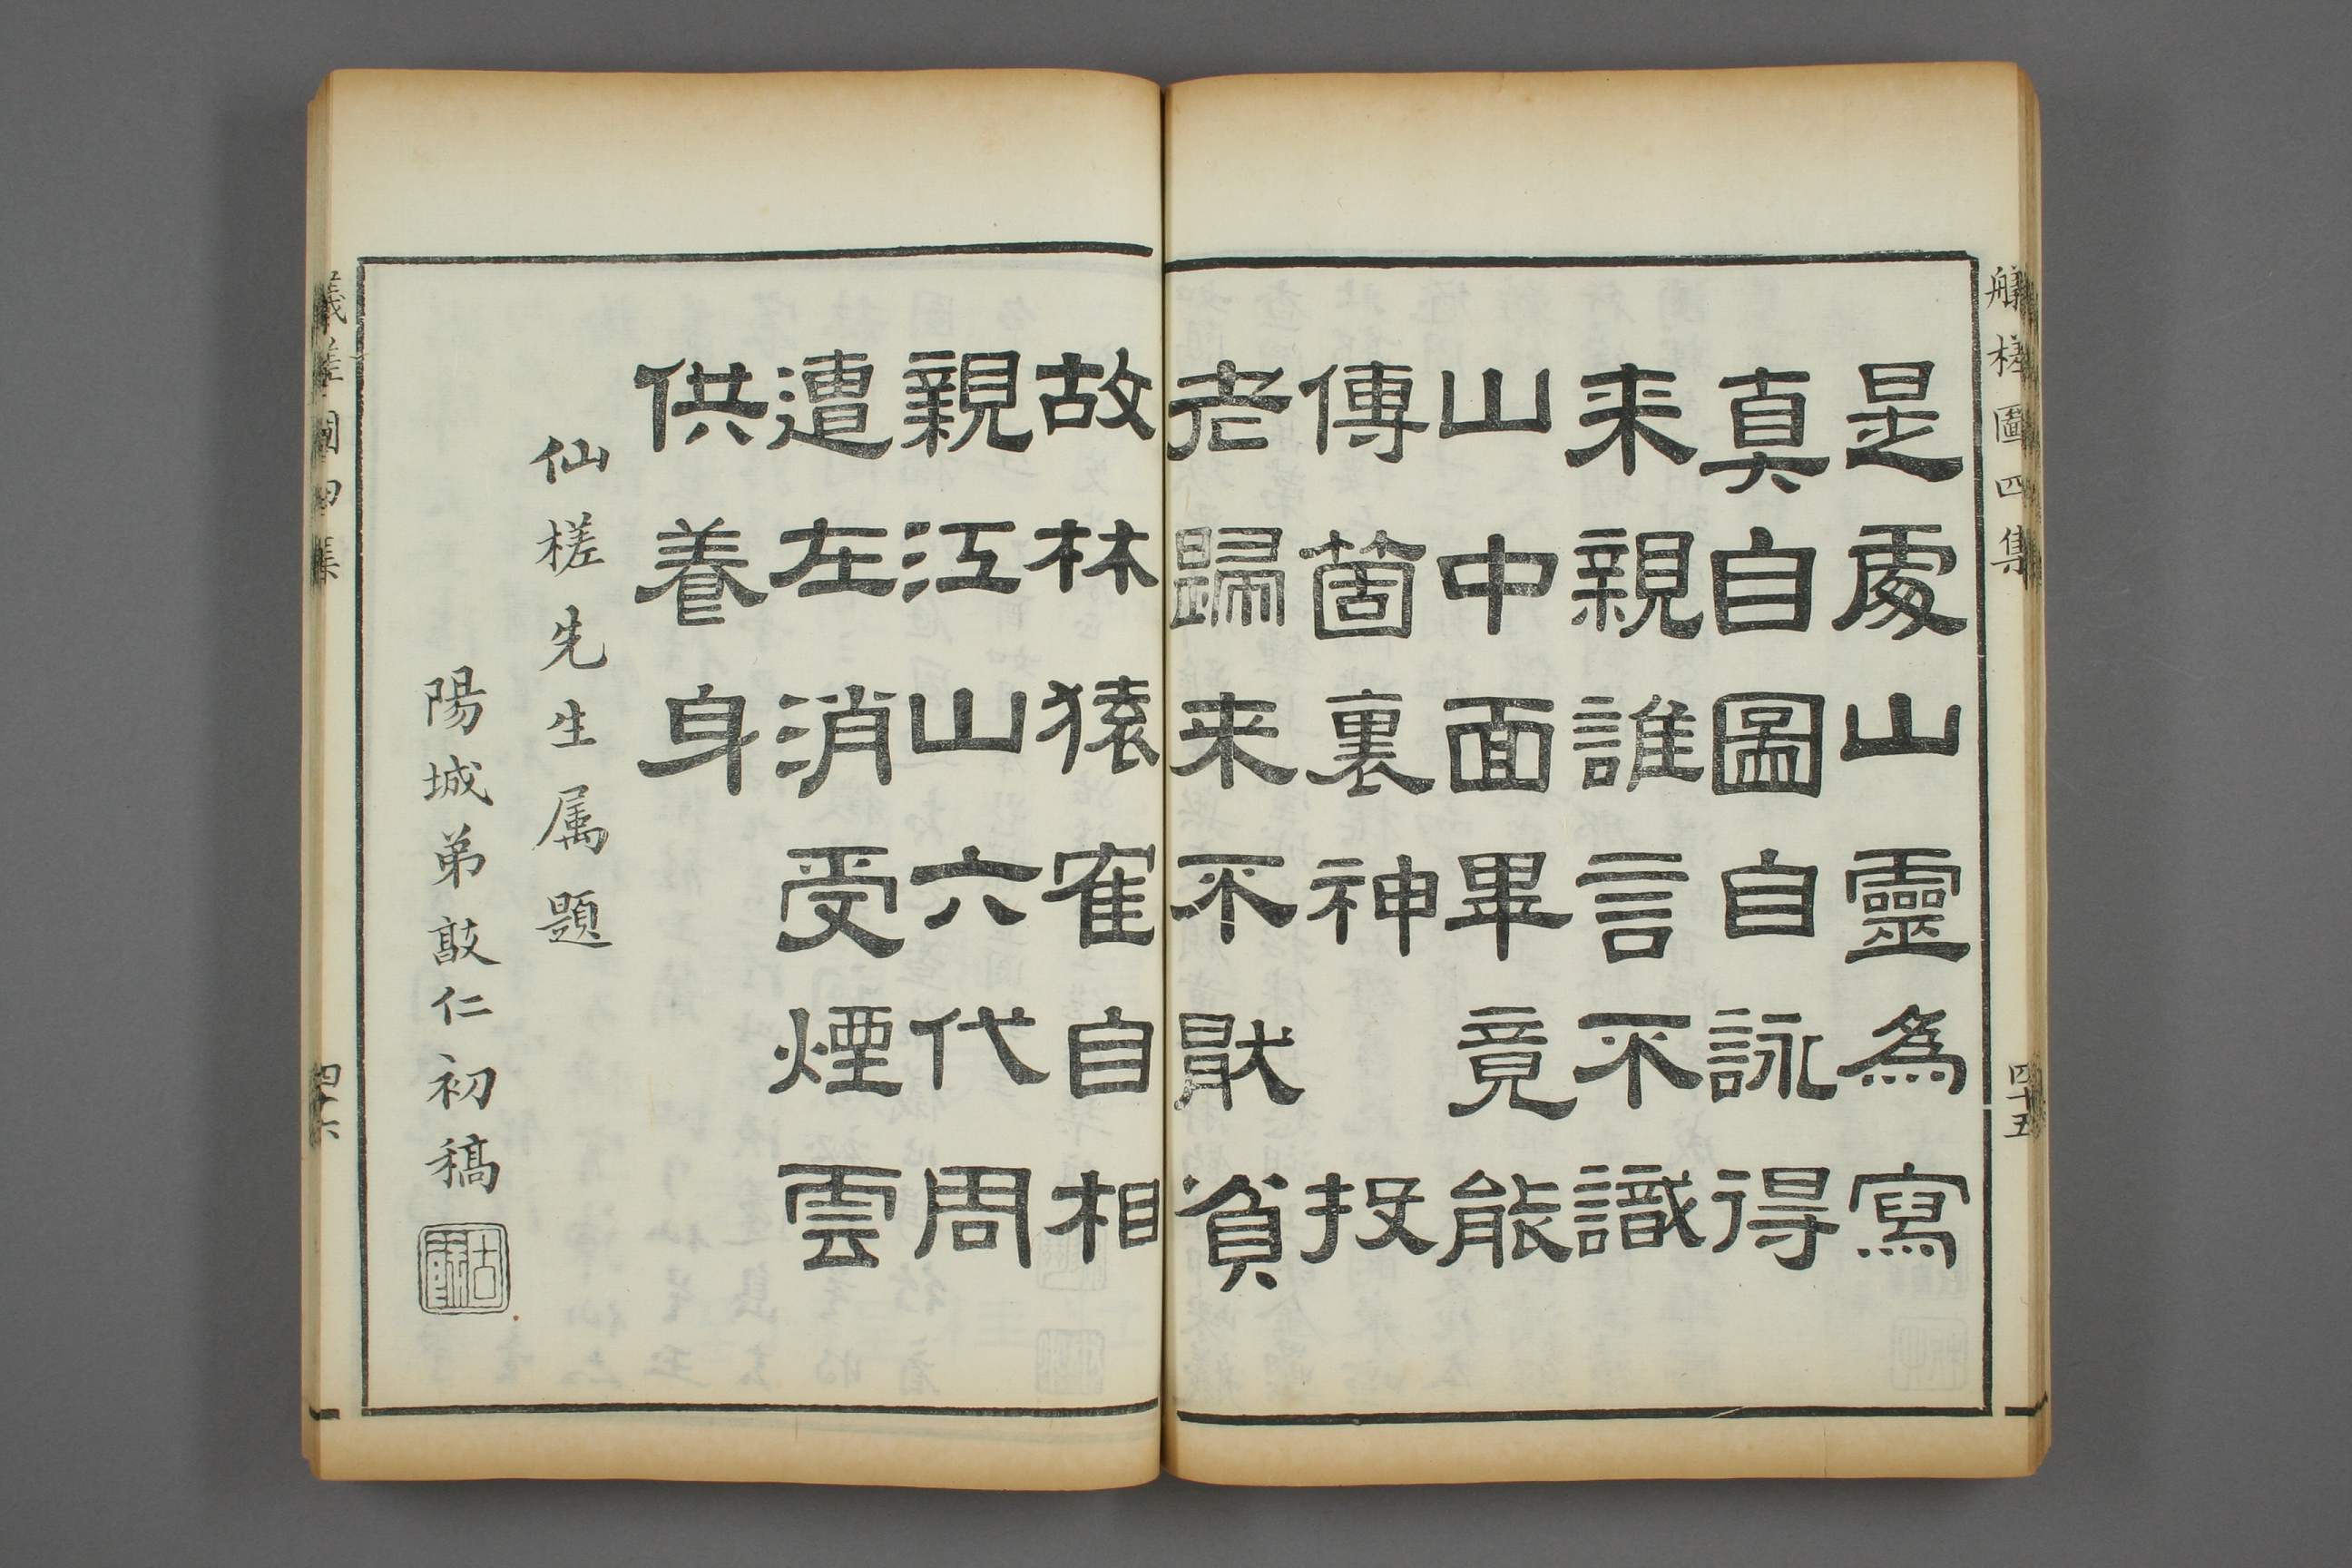 艤槎圖四集
四十五
是處山靈為寫
真自圖自詠得
来親誰言不識
山中面畢竟能
傳箇裏神 投
老歸来不猒貧
故林猿寉自相
親江山六代周
遭在消受煙雲
供養身
仙槎先生属題
陽城弟敼仁初稿
艤槎圖四集
四十六